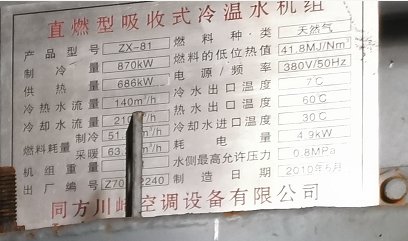 直燃型吸收式冷温水机组
产品型号 ZX-81 燃料种类 天然气
制冷量 870kW 燃料的低位热值 41.8MJ/Nm³
供热量 686kW 电源/频率 380V/50Hz
冷热水流量 140m³/h 冷水出口温度 7℃
冷却水流量 热水出口温度 60℃
燃料耗量 制冷 51. 冷却水进口温度 30℃
采暖 63. 耗电量 4.9kW
机组重量 水侧最高允许压力 0.8MPa
出厂编号 Z70 2240 制造日期 2010年5月
同方川崎空调设备有限公司